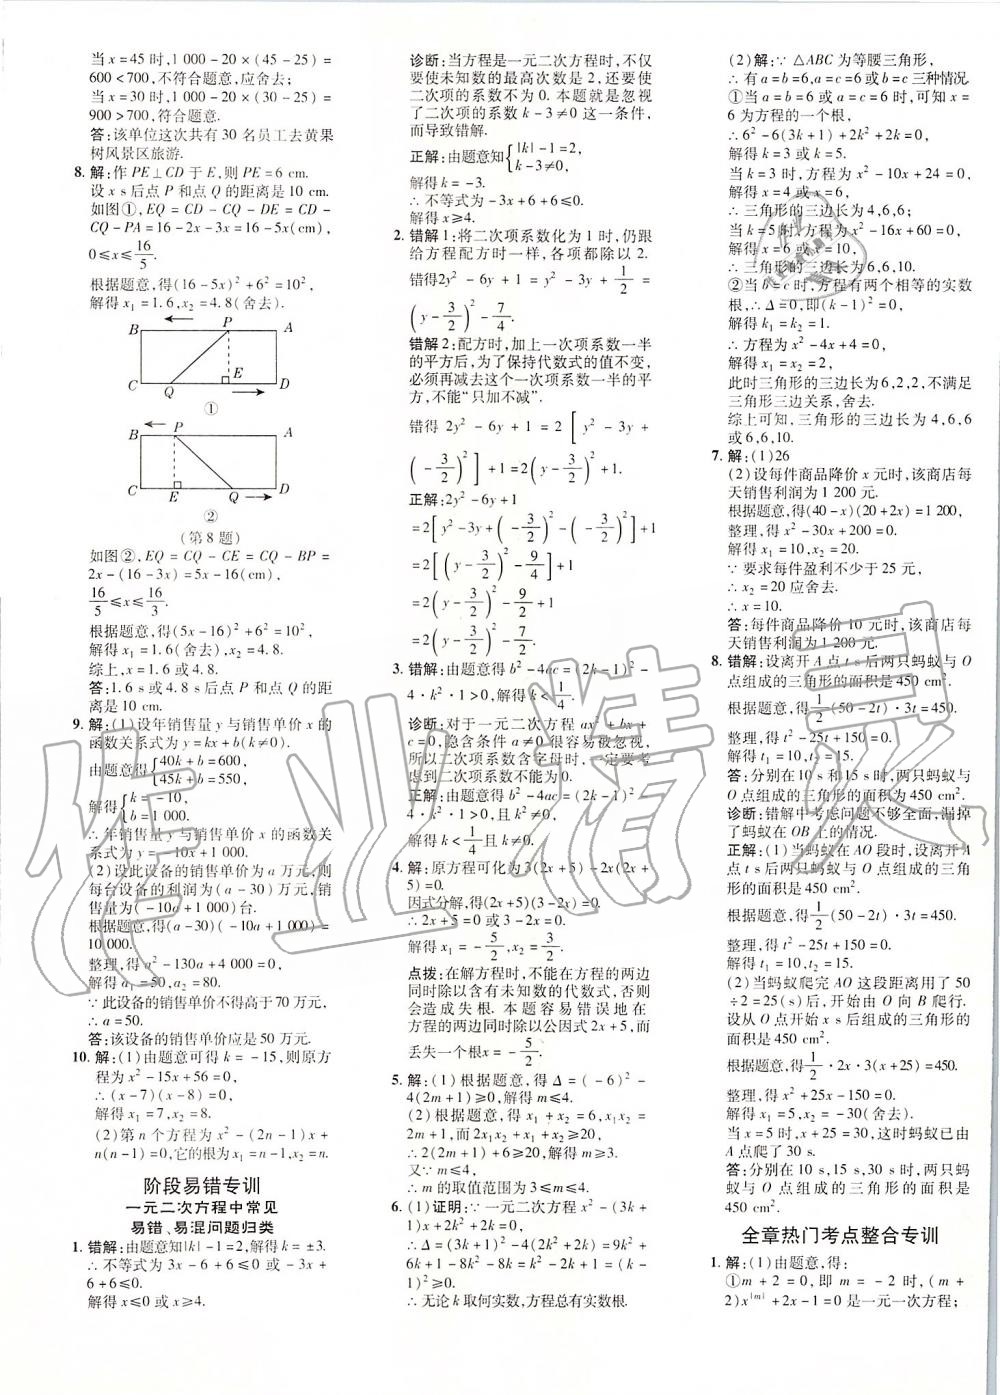 当 x=45 时,1 000-20×(45-25)=
600<700,不符合题意,应舍去;
当 x=30 时,1 000-20×(30-25)=
900>700,符合题意.
答:该单位这次共有 30 名员工去黄果
树风景区旅游.
8. 解:作 PE⊥CD 于 E,则 PE=6 cm.
设 x s后点 P 和点 Q 的距离是 10 cm.
如图①,EQ=CD-CQ-DE=CD-
CQ-PA=16-2x-3x=16-5x(cm),
0≤x≤16/5.
根据题意,得(16-5x)²+6²=10²,
解得 x₁=1.6,x₂=4.8(舍去).
B P A
C Q E D
①
B P A
C E Q D
②
(第 8 题)
如图②,EQ=CQ-CE=CQ-BP=
2x-(16-3x)=5x-16(cm),
16/5≤x≤16/3.
根据题意,得(5x-16)²+6²=10²,
解得 x₁=1.6(舍去),x₂=4.8.
综上,x=1.6 或 4.8.
答:1.6 s或 4.8 s后点 P 和点 Q 的距
离是 10 cm.
9. 解:(1)设年销售量 y 与销售单价 x 的
函数关系式为 y=kx+b(k≠0),
由题意得{40k+b=600,
45k+b=550,
解得{k=-10,
b=1 000.
∴年销售量 y 与销售单价 x 的函数关
系式为 y=-10x+1 000.
(2)设此设备的销售单价为 a 万元,则
每台设备的利润为(a-30)万元,销
售量为(-10a+1 000)台.
根据题意,得(a-30)(-10a+1 000)=
10 000.
整理,得 a²-130a+4 000=0,
解得 a₁=50,a₂=80.
∵此设备的销售单价不得高于 70 万元,
∴a=50.
答:该设备的销售单价应是 50 万元.
10. 解:(1)由题意可得 k=-15,则原方
程为 x²-15x+56=0,
∴(x-7)(x-8)=0,
解得 x₁=7,x₂=8.
(2)第 n 个方程为 x²-(2n-1)x+
n(n-1)=0,它的根为 x₁=n-1,x₂=n.
阶段易错专训
一元二次方程中常见
易错、易混问题归类
1. 错解:由题意知|k|-1=2,解得 k=±3.
∴不等式为 3x-6+6≤0 或-3x+
6+6≤0.
解得 x≤0 或 x≥4.
诊断:当方程是一元二次方程时,不仅
要使未知数的最高次数是 2,还要使
二次项的系数不为 0. 本题就是忽视
了二次项的系数 k-3≠0 这一条件,
而导致错解.
正解:由题意知{|k|-1=2,
k-3≠0,
解得 k=-3.
∴不等式为-3x+6+6≤0.
解得 x≥4.
2. 错解 1:将二次项系数化为 1 时,仍跟
给方程配方时一样,各项都除以 2.
错得2y²-6y+1=y²-3y+1/2=
(y-3/2)²-7/4.
错解 2:配方时,加上一次项系数一半
的平方后,为了保持代数式的值不变,
必须再减去这个一次项系数一半的平
方,不能“只加不减”.
错得 2y²-6y+1=2[y²-3y+
(-3/2)²]+1=2(y-3/2)²+1.
正解:2y²-6y+1
=2[y²-3y+(-3/2)²-(-3/2)²]+1
=2[(y-3/2)²-9/4]+1
=2(y-3/2)²-9/2+1
=2(y-3/2)²-7/2.
3. 错解:由题意得 b²-4ac=(2k-1)²-
4·k²·1>0,解得 k<1/4.
诊断:对于一元二次方程 ax²+bx+
c=0,隐含条件 a≠0 很容易被忽视,
所以二次项系数含字母时,一定要考
虑到二次项系数不能为 0.
正解:由题意得 b²-4ac=(2k-1)²-
4·k²·1>0,且 k²≠0,
解得 k<1/4且 k≠0.
4. 解:原方程可化为 3(2x+5)-2x(2x+
5)=0.
因式分解,得(2x+5)(3-2x)=0.
∴2x+5=0 或 3-2x=0.
解得 x₁=-5/2,x₂=3/2.
点拨:在解方程时,不能在方程的两边
同时除以含有未知数的代数式,否则
会造成失根. 本题容易错误地在
方程的两边同时除以公因式 2x+5,而
丢失一个根 x=-5/2.
5. 解:(1)根据题意,得 Δ=(-6)²-
4(2m+1)≥0,解得 m≤4.
(2)根据题意,得 x₁+x₂=6,x₁x₂=
2m+1,而 2x₁x₂+x₁+x₂≥20,
∴2(2m+1)+6≥20,解得 m≥3.
又∵m≤4,
∴m 的取值范围为 3≤m≤4.
6. (1)证明:∵一元二次方程 x²-
(3k+1)x+2k²+2k=0,
∴Δ=(3k+1)²-4(2k²+2k)=9k²+
6k+1-8k²-8k=k²-2k+1=(k-1)²≥0.
∴无论 k 取何实数,方程总有实数根.
(2)解:∵△ABC 为等腰三角形,
∴有 a=b=6,a=c=6 或 b=c 三种情况.
①当 a=b=6 或 a=c=6 时,可知 x=
6 为方程的一个根,
∴6²-6(3k+1)+2k²+2k=0,
解得 k=3 或 k=5.
当 k=3 时,方程为 x²-10x+24=0,
解得 x=4 或 x=6,
∴三角形的三边长为 4,6,6;
当 k=5 时,方程为 x²-16x+60=0,
解得 x=6 或 x=10,
∴三角形的三边长为 6,6,10.
②当 b=c 时,方程有两个相等的实数
根,∴Δ=0,即(k-1)²=0,
解得 k₁=k₂=1.
∴方程为 x²-4x+4=0,
解得 x₁=x₂=2.
此时三角形的三边长为 6,2,2,不满足
三角形三边关系,舍去.
综上可知,三角形的三边长为 4,6,6
或 6,6,10.
7. 解:(1)26
(2)设每件商品降价 x 元时,该商店每
天销售利润为 1 200 元.
根据题意,得(40-x)(20+2x)=1 200,
整理,得 x²-30x+200=0.
解得 x₁=10,x₂=20.
∵要求每件盈利不少于 25 元,
∴x₂=20 应舍去.
∴x=10.
答:每件商品降价 10 元时,该商店每
天销售利润为 1 200 元.
8. 错解:设离开 A 点 t s后两只蚂蚁与 O
点组成的三角形的面积是 450 cm².
根据题意,得1/2(50-2t)·3t=450,
整理,得 t²-25t+150=0.
解得 t₁=10,t₂=15.
答:分别在 10 s和 15 s时,两只蚂蚁与
O 点组成的三角形的面积为 450 cm².
诊断:错解中考虑问题不够全面,漏掉
了蚂蚁在 OB 上的情况.
正解:(1)当蚂蚁在 AO 段时,设离开 A
点 t s后两只蚂蚁与 O 点组成的三角
形的面积是 450 cm².
根据题意,得1/2(50-2t)·3t=450.
整理,得 t²-25t+150=0.
解得 t₁=10,t₂=15.
(2)当蚂蚁爬完 AO 这段距离用了 50
÷2=25(s)后,开始由 O 向 B 爬行.
设从 O 点开始 x s后组成的三角形的
面积是 450 cm².
根据题意,得1/2·2x·3(x+25)=450.
整理,得 x²+25x-150=0.
解得 x₁=5,x₂=-30(舍去).
当 x=5 时,x+25=30,这时蚂蚁已由
A 点爬了 30 s.
答:分别在 10 s,15 s,30 s时,两只蚂
蚁与 O 点组成的三角形的面积为
450 cm².
全章热门考点整合专训
1. 解:(1)由题意,得:
①m+2=0,即 m=-2 时,(m+
2)x^|m|+2x-1=0 是一元一次方程;
作业精灵